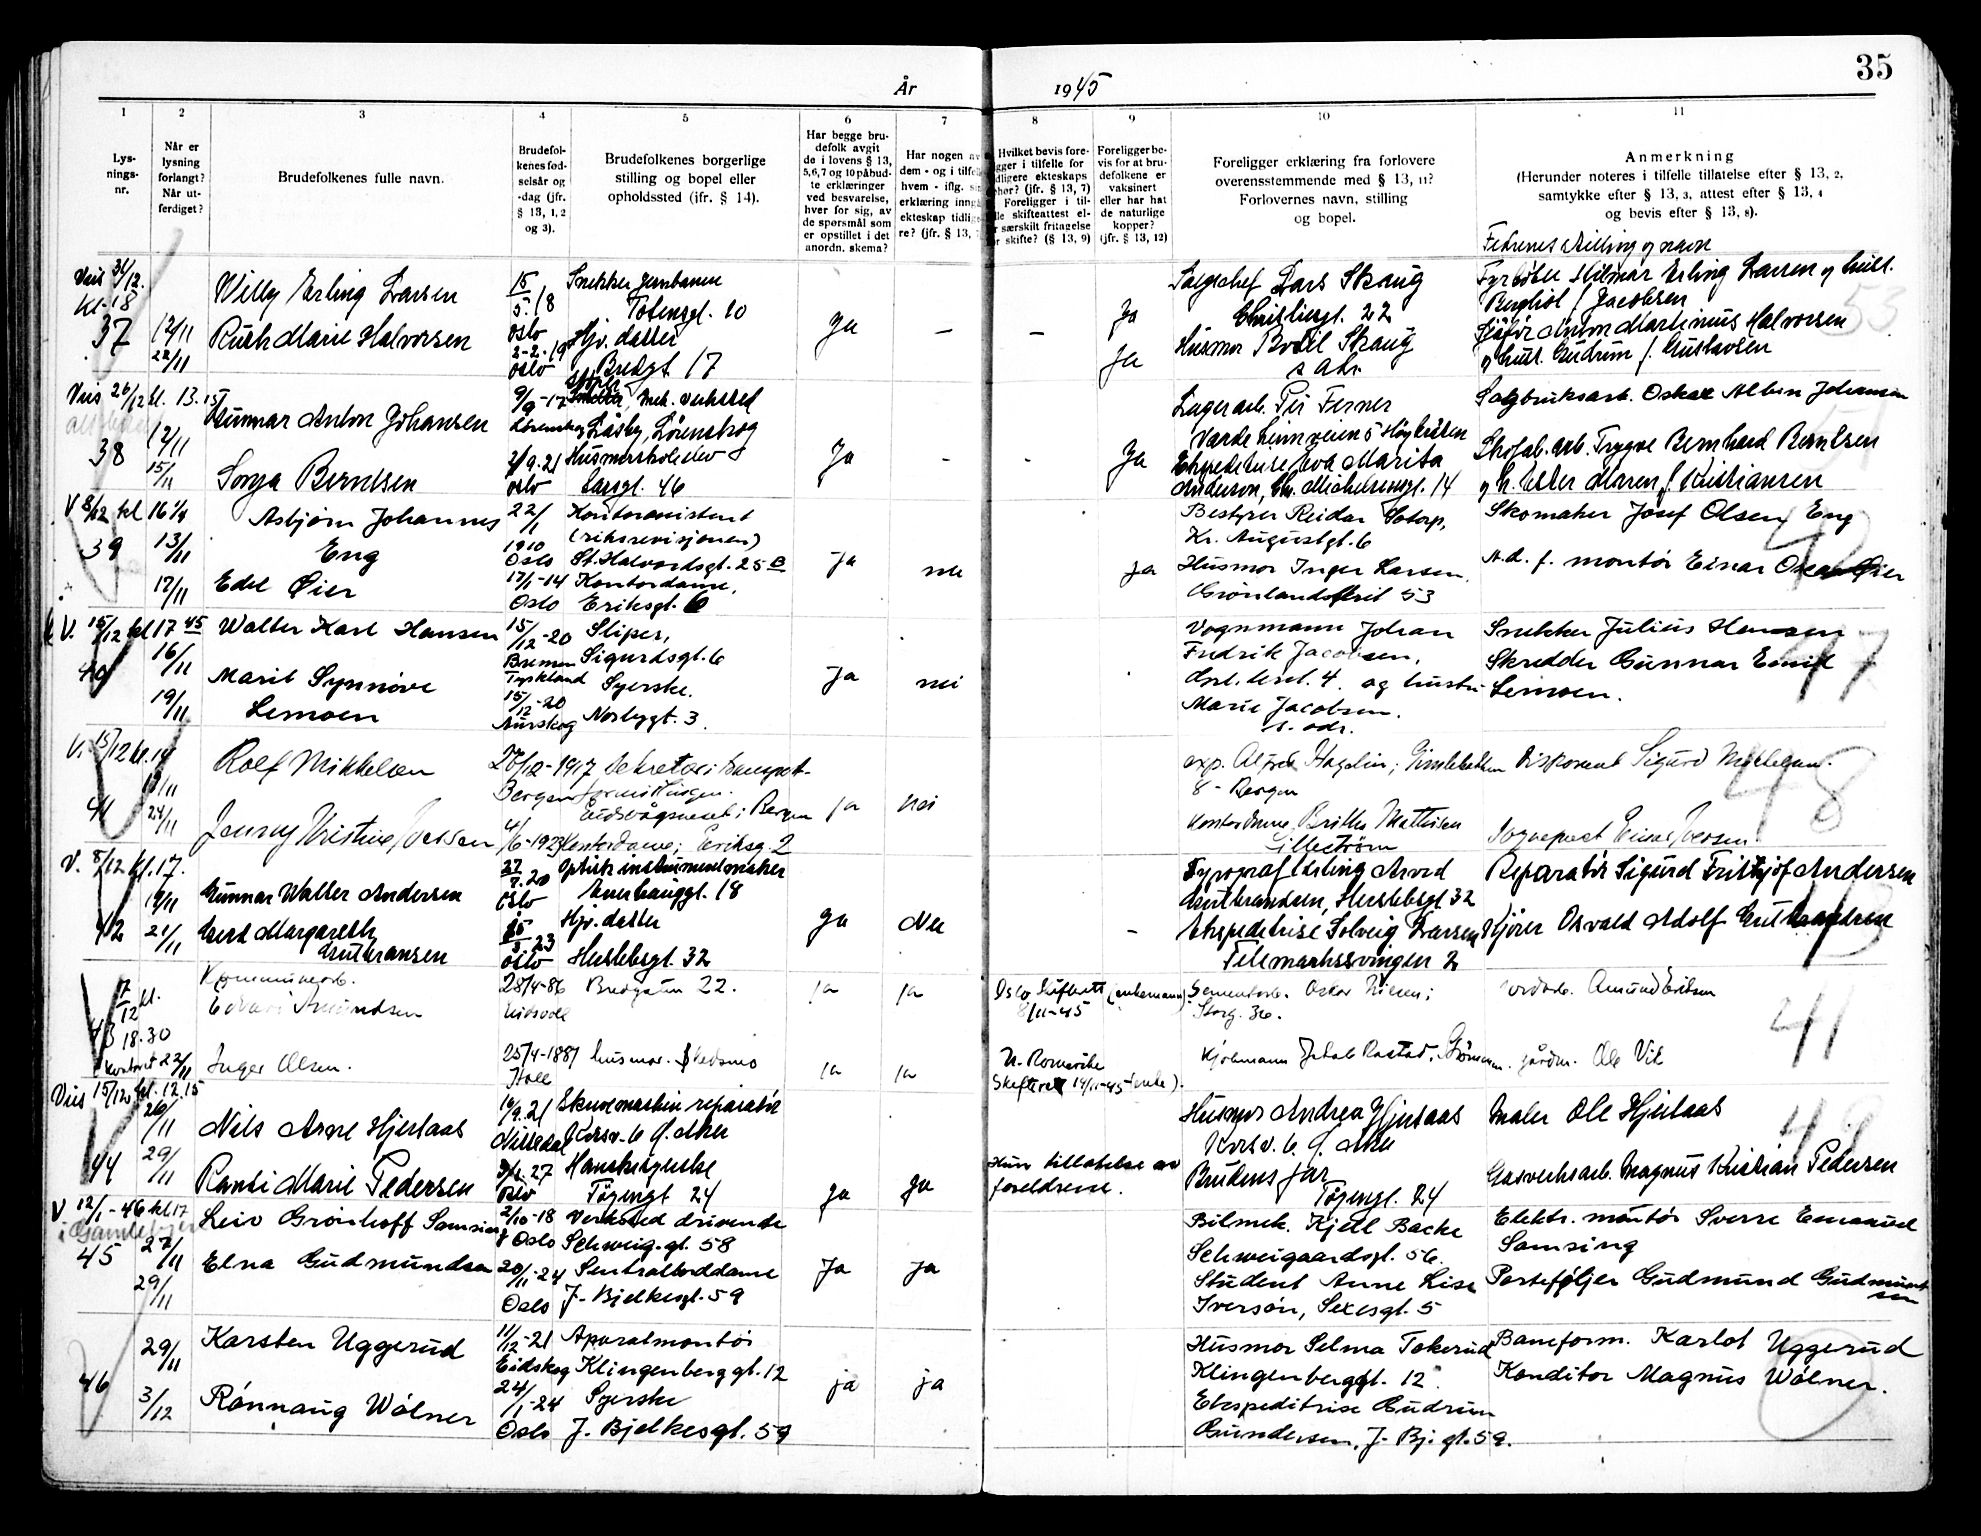 35
År 1945
1 2 3 4 5 6 7 8 9 10 11
Lys-
nings-
nr.
Når er
lysning
forlangt?
Når ut-
ferdiget?
Brudefolkenes fulle navn.
Brudefol-
kenes fød-
selsår og
-dag (jfr.
§ 13, 1, 2
og 3).
Brudefolkenes borgerlige
stilling og bopel eller
opholdssted (jfr. § 14).
Har begge bru-
defolk avgit
de i lovens § 13,
5, 6, 7 og 10 påbud-
te erklæringer
ved besvarelse,
hver for sig, av
de spørsmål som
er opstillet i det
anordn. skema?
Har nogen av
dem - og i tilfelle
hvem - iflg.
erklæring inngå
ekteskap tidlig
re? (jfr. § 13,
Hvilket bevis fore-
ligger i tilfelle for
tidligere ekteskaps
ophør? (jfr. § 13, 7)
Foreligger i til-
felle skifteattest el-
ler særskilt fritagelse
for skifte? (§ 13, 9)
Foreligger be-
vis for at bru-
defolkene er
vaksinert
eller har hat
de naturlige
kopper?
(jfr. § 13, 12)
Foreligger erklæring fra forlovere
overensstemmende med § 13, 11?
Forlovernes navn, stilling
og bopel.
Anmerkning
(Herunder noteres i tilfelle tillatelse efter § 13, 2,
samtykke efter § 13, 3, attest efter § 13, 4
og bevis efter § 13, 8).
Fedrenes stilling og navn
Viis 31/12.
Kl. 18
37
12/11
22/11
Willy Erling Larsen
Ruth Marie Halvorsen
15
5. 18
Oslo
2-2-19
Oslo
Snekker Jernbanen
Totengt. 10
Hjv. datter
Bredgt. 17
Ja — —
Ja
Ja
Salgschef Lars Skaug
Christiesgt. 22
Husmor Bodil Skaug
s. adr.
Fyrbøter Hilmar Erling Larsen og hust.
Bergliot f. Jacobsen
Sjåfør Anton Martinius Halvorsen
og hust. Gudrun f. Gustavsen
53
Viis 26/12 kl. 13.15
38
12/11
15/11
Gunnar Anton Johansen
Sonja Berntsen
9/9-17
Lørenskog
2/9.21
Oslo
Mek. verksted
Låsby, Lørenskog
Husmorskoleelev
Larsgt. 46
Ja - -
Ja
Lagerarb. Per Ferner
Vardelinnveien 5 Høybråten
Ekspeditrise Eva Marita
Anderson, Chr. Michelsensgt. 14
Sagbruksarb. Oskar Albin Johansen
Skofab. arb. Trygve Bernhard Berntsen
og h. Ester Maren f. Kristiansen
V 8/12 kl 16 1/4
39
13/11
17/11
Asbjørn Johannes
Eng
Edel Øier
22/1
1910
Oslo
17/1-14
Oslo
Kontorassistent
(riksrevisjonen)
St. Halvardsgt. 25 B
Kontordame,
Eriksgt. 6
Ja nei
Ja
Bestyrer Reidar Sotorp,
Kr. Augustgt. 6
Husmor Inger Larsen
Grønlandsleiret 53
Skomaker Josef Olsen Eng
A.d. f. montør Einar Oscar Øier
V. 15/12 kl 17 45
40
16/11
19/11
Walter Karl Hansen
Marit Synnøve
Lemoen
15/12-20
Bremen
Tyskland
15/12-20
Aurskog
Sliper,
Sigurdsgt. 6
Syerske.
Norbygt. 3.
Ja nei
Vognmann Johan
Fredrik Jacobsen,
og hustru
Marie Jacobsen.
s. adr.
Snekker Julius Hansen
Skredder Gunnar Emil
Lemoen.
47
V. 15/12 kl. 14
41
24/11
Rolf Mikkelsen
Jenny Kristine Iversen
20/12-1917
Bergen
4/6-1923
Sekretær i transport-
Eidsvågneset i Bergen
Kontordame; Eriksg. 2
ja nei
exp. Alfred Hagelin; Gimlebakken
8 - Bergen
Kontordame Brithe Mathisen
Lillestrøm
Disponent Sigurd Mikkelsen.
Sogneprest Einar Iversen.
48
V. 8/12 kl. 17.
42
19/11
21/11
Gunnar Walter Andersen
Gerd Margareth
Gutbransen
27
7. 20
Oslo
15
5. 23
Oslo
Optisk instrumentmaker
Aurehauggt. 18
Hjv. datter
Herslebsgt. 32
Ja Nei
-
Typograf Erling Arvid
Gutbrandsen, Herslebsgt. 32
Ekspeditrise Solveig Larsen
Telemarkssvingen 2
Reparatør Sigurd Fritjof Andersen
Kjører Osvald Adolf Gutbrandsen
43
7/12 kl.
18.30
43
22/11
Kommunearb.
Edvard Amundsen
Inger Olsen.
28/4-86
Eidsvoll
25/4-1887
Bredgaten 22.
husmor. Skedsmo
ja ja
ja ja
Oslo Skifterett (enkemann)
8/11-45
N. Romerike
Skifterett 14/11-45 (enke).
Sementarb. Oskar Nilsen;
Storg. 36.
Kjøbmann Jakob Rostad, Strømmen.
Jordarb. Amund Eriksen
gårdm. Ole Vik
41
Viis 15/12 kl. 12.15
44
26/11
29/11
Nils Arne Hjerlaas
Randi Marie Pedersen
10/9.21
Nittedal
27
Oslo
Skrivemaskin reparatør
Korsv. 6 Ø. Aker
Hanskesyerske
Tøyengt. 24
Ja Ja
Har tillatelse av
foreldrene.
Husmor Andrea Hjerlaas
Korsv. 6. Ø. Aker
Brudens far
Tøyengt. 24
Maler Ole Hjerlaas
Gasverksarb. Magnus Kristian Pedersen
49
V 12/1-46 kl 17
i Gamlebyen
45
27/11
29/11
Leiv Grønhoff Samsing
Elna Gudmundsen
2/10-18
Oslo
20/11-24
Oslo
Verksted drivende
Schweig. gt. 58
Sentralborddame
J. Bjelkesgt. 59
Ja Ja
Bilmek. Kjell Backe
Schweigaardsgt. 56.
Student Anne Lise
Iverson, Sexesgt. 5
Elektr. montør Sverre Emanuel
Samsing
Porteføljer Gudmund Gudmundsen
46
29/11
3/12
Karsten Uggerud
Rønnaug Wølner
11/12-21
Eidskog
24/1-24
Oslo
Aparatmontør
Klingenberggt. 12
Syerske
J. Bjelkesgt. 59
ja ja
Husmor Selma Tokerud
Klingenberggt. 12
Ekspeditrise Gudrun
Gundersen, J. Bj. gt. 59.
Baneform. Karlot Uggerud
Konditor Magnus Wølner.